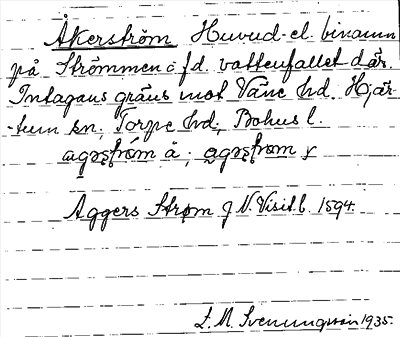 Åkerström Huvud- el. binamn
på Strömmen o fd. vattenfallet där.
Intagans gräns mot Väne hd. Hjär-
-tum sn. Torpe hd, Bohus l.
Aggers Strøm J N. Visitb. 1594.
S. M. Svenungsson 1935.